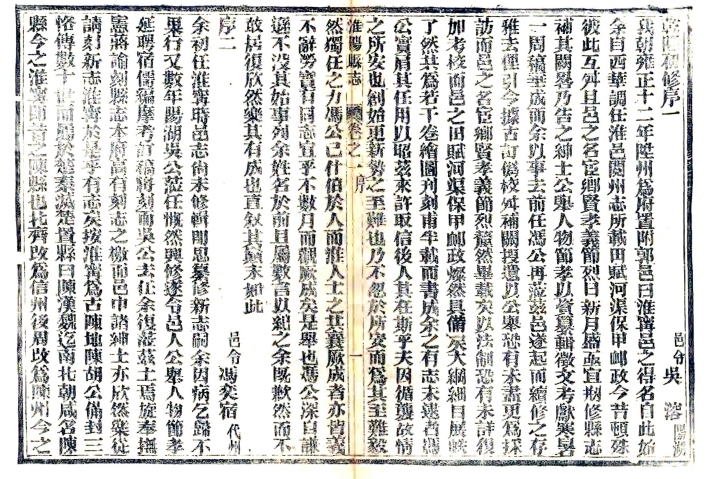 乾隆初修序一
邑令吳溶陽湖
我朝雍正十二年陞州爲府置附郭邑曰淮寧邑之得名自此始
余自西華調任淮邑閱州志所載田賦河渠保甲郵政今昔頓殊
彼此互舛且邑之名宦鄉賢孝義節烈日新月盛亟宜剏修縣志
補其闕畧乃告之紳士公舉人物節孝以資纂輯徵文考獻寒暑
一周稿垂成而余以事去前任馮公再蒞茲邑遂起而續修之存
雅去俚引今據古訂僞校舛補闕搜遺以公舉恐有未盡更爲採
訪而邑之名宦鄉賢孝義節烈釐然畢載矣以法制恐有未詳復
加考核而邑之田賦河渠保甲郵政燦然具備矣大綱細目展帙
了然其爲若干卷繪圖刋刻甫半載而書成余之有志未逮者馮
公實肩其任用以昭茲來許取信後人其在斯乎夫因循襲故情
之所安也創始更新勢之至難也乃不忽於所安而爲其至難毅
淮陽縣志 卷之一 序 一
然獨任之力馮公已什伯於人而淮人士之共襄厥成者亦皆義
不辭勞實日因志宜乎不數月而觀厥成矣是舉也馮公深自謙
遜不没其始事列余姓名於前且屬數言以紀之余既歉然而不
敢居復欣然樂其有成也直敘其顚末如此
序二
邑令馮奕宿代州
余初任淮寧時邑志尚未修輯卽思纂修新志嗣余因病乞歸不
果行又數年陽湖吳公蒞任慨然興修遂令邑人公舉人物節孝
延聘宿儒編摩考訂稿將刻而吳公去任余復蒞茲土焉旋奉撫
憲蔣諭刻縣志本府請有刻志之檄而邑中諸紳士亦欣然樂從
請刻新志淮寧於是乎有志矣按淮寧爲古陳地陳胡公備封三
恪傳數十世而屬於楚秦滅楚置縣曰陳漢魏迄南北朝咸名陳
縣今之淮寧卽昔之陳縣也北齊改爲信州後周改爲陳州今之